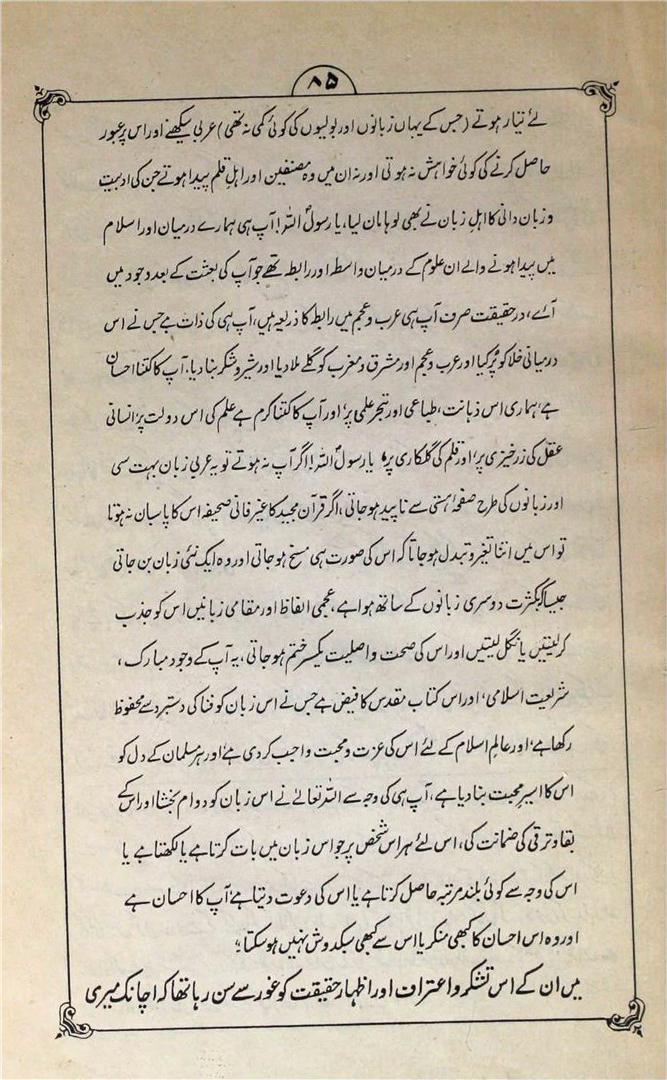 ۸۵
لئے تیار ہوتے (جس کے یہاں زبانوں اور بولیوں کی کوئی کمی نہ تھی) عربی سیکھنے اور اس پر عبور
حاصل کرنے کی کوئی خواہش نہ ہوتی اور نہ ان میں وہ مصنفین اور اہلِ قلم پیدا ہوتے جن کی ادبیت
و زبان دانی کا اہلِ زبان نے بھی لوہا مان لیا، یا رسول اللہ! آپ ہی ہمارے درمیان اور اسلام
میں پیدا ہونے والے ان علوم کے درمیان واسطہ اور رابطہ تھے جو آپ کی بعثت کے بعد وجود میں
آئے، در حقیقت صرف آپ ہی عرب و عجم میں رابطہ کا ذریعہ ہیں، آپ ہی کی ذات ہے جس نے اس
درمیانی خلا کو پُر کیا اور عرب و عجم اور مشرق و مغرب کو گلے ملا دیا اور شیر و شکر بنا دیا، آپ کا کتنا احسان
ہے، ہماری اس ذہانت، طباعی اور تبحر علمی پر، اور آپ کا کتنا کرم ہے علم کی اس دولت پر، انسانی
عقل کی زرخیزی پر، اور قلم کی گلکاری پر، یا رسول اللہ! اگر آپ نہ ہوتے تو یہ عربی زبان بہت سی
اور زبانوں کی طرح صفحۂ ہستی سے ناپید ہو جاتی، اگر قرآن مجید کا غیر فانی صحیفہ اس کا پاسبان نہ ہوتا
تو اس میں اتنا تغیر و تبدل ہو جاتا کہ اس کی صورت ہی مسخ ہو جاتی اور وہ ایک نئی زبان بن جاتی
جیسا کہ بکثرت دوسری زبانوں کے ساتھ ہوا ہے، عجمی الفاظ اور مقامی زبانیں اس کو جذب
کر لیتیں یا نگل لیتیں اور اس کی صحت و اصلیت یکسر ختم ہو جاتی، یہ آپ کے وجود مبارک،
شریعت اسلامی، اور اس کتاب مقدس کا فیض ہے جس نے اس زبان کو فنا کی دستبرد سے محفوظ
رکھا ہے، اور عالمِ اسلام کے لئے اس کی عزت و محبت واجب کر دی ہے، اور ہر مسلمان کے دل کو
اس کا اسیرِ محبت بنا دیا ہے، آپ ہی کی وجہ سے اللہ تعالیٰ نے اس زبان کو دوام بخشا اور اس کے
بقا و ترقی کی ضمانت کی، اس لئے ہر اس شخص پر جو اس زبان میں بات کرتا ہے یا لکھتا ہے یا
اس کی وجہ سے کوئی بلند مرتبہ حاصل کرتا ہے یا اس کی دعوت دیتا ہے، آپ کا احسان ہے
اور وہ اس احسان کا کبھی منکر یا اس سے کبھی سبکدوش نہیں ہو سکتا،"
میں ان کے اس تشکر و اعتراف اور اظہار حقیقت کو غور سے سن رہا تھا کہ اچانک میری